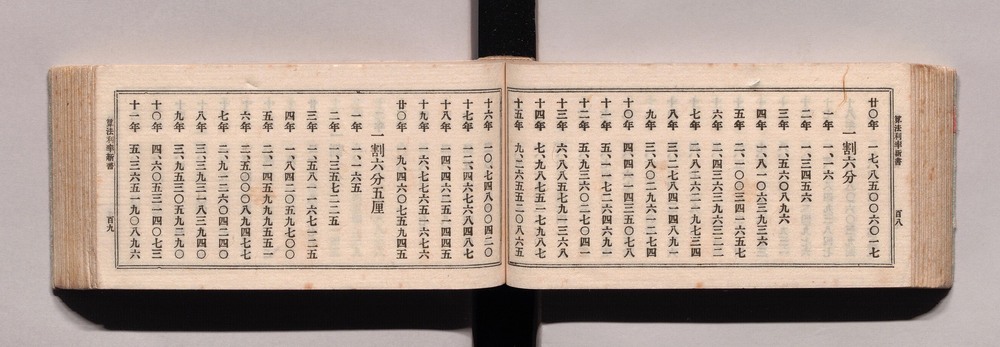 算法利率新書
百八
廿〇年 一七、八五〇〇六〇一七
一割六分
一年 一、一六
二年 一、三四五六
三年 一、五六〇八九六
四年 一、八一〇六三九三六
五年 二、一〇〇三四一六五七
六年 二、四三六三九六三二二
七年 二、八二六二一九七三四
八年 三、二七八四一四八九一
九年 三、八〇二九六一二七四
十〇年 四、四一一四三五〇七八
十一年 五、一一七二六四六九一
十二年 五、九三六〇二七〇四一
十三年 六、八八五七九一三六八
十四年 七、九八七五一七九八七
十五年 九、二六五五二〇八六五
十六年 一〇、七四八〇〇四二〇
十七年 一二、四六七六八四八七
十八年 一四、四六二五一四四五
十九年 一六、七七六五一六七六
廿〇年 一九、四六〇七五九四五
一割六分五厘
一年 一、一六五
二年 一、三五七二二五
三年 一、五八一一六七一二五
四年 一、八四二〇五九七〇〇
五年 二、一四五九九九五五一
六年 二、五〇〇〇八九四七七
七年 二、九一二六〇四二四〇
八年 三、三九三一八三九四〇
九年 三、九五三〇五九二九〇
十〇年 四、六〇五三一四〇七三
十一年 五、三六五一九〇八九六
算法利率新書
百九